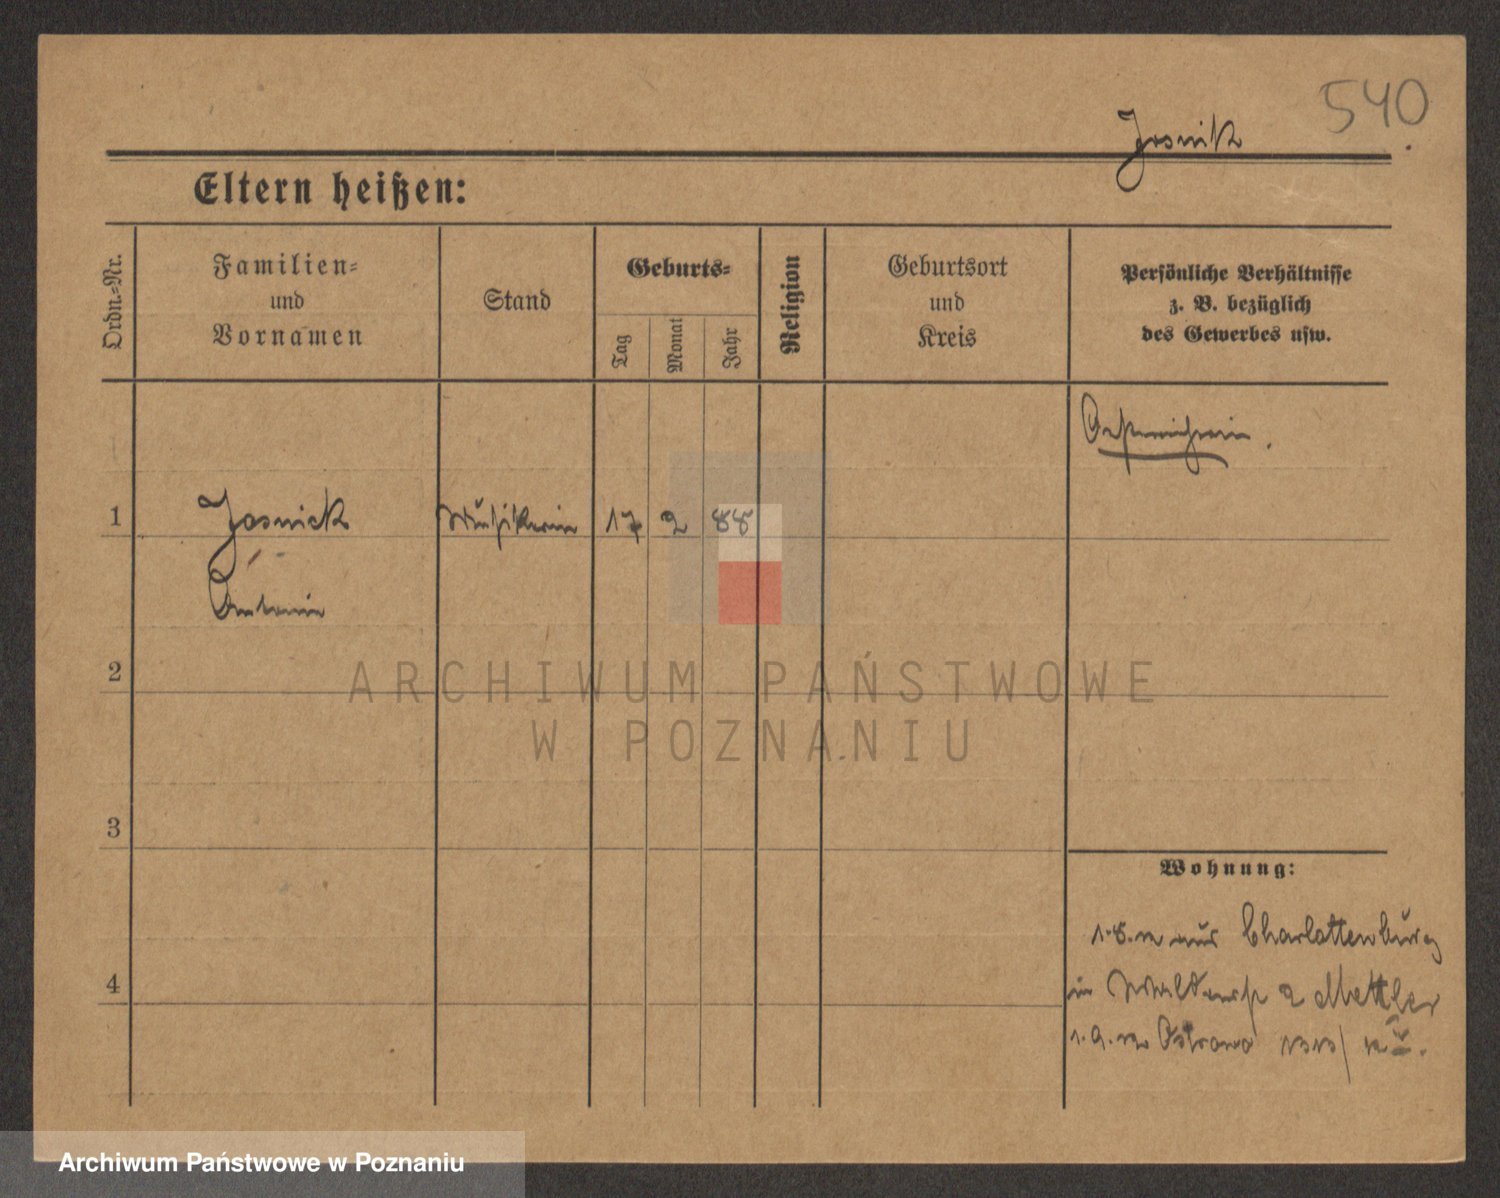 540
Josnik
Eltern heißen:
Ordn.-Nr.
Familien-
und
Vornamen
Stand
Geburts-
Tag
Monat
Jahr
Religion
Geburtsort
und
Kreis
Persönliche Verhältnisse
z. B. bezüglich
des Gewerbes usw.
Oesterreicherin.
1
Josnick
Musikerin
17
2
88
Antonie
2
3
4
Wohnung:
aus Charlottenburg
in 2 Mettler
Ostrowo
ARCHIWUM PAŃSTWOWE
W POZNANIU
Archiwum Państwowe w Poznaniu